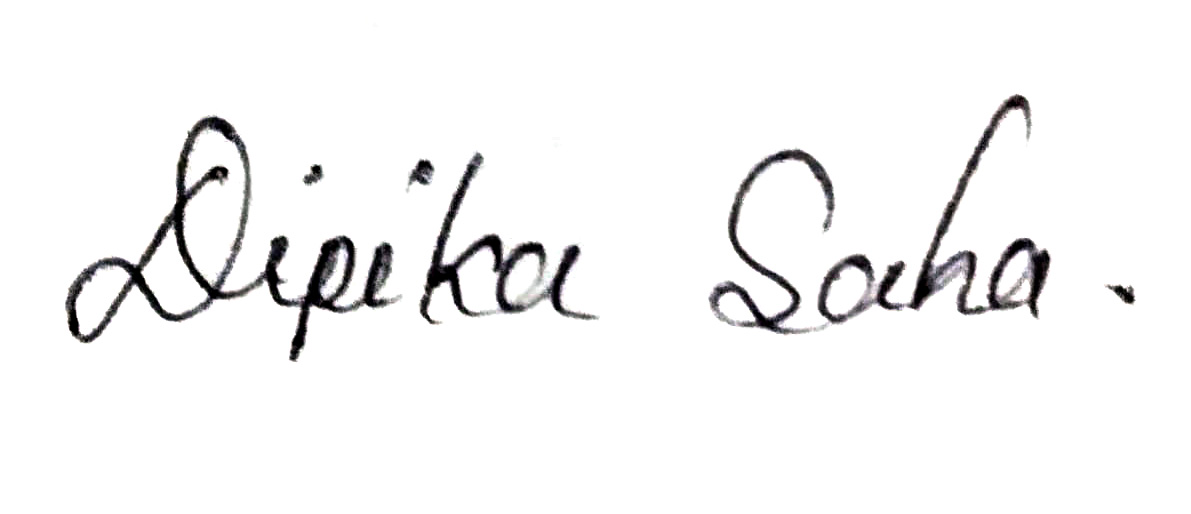 Dipika Saha.